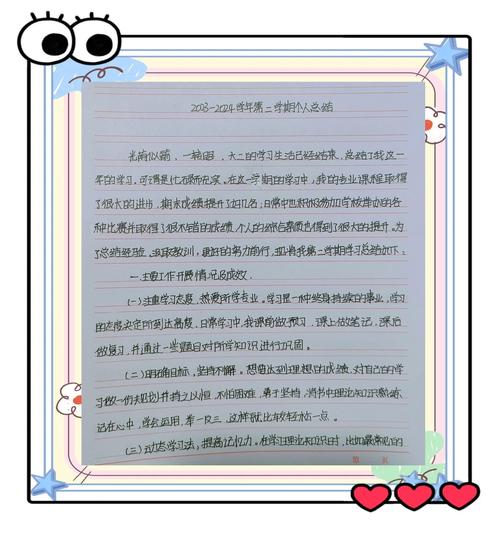 2023-2024学年第二学期个人总结
光阴似箭、一转眼、大二的学习生活已经结束，总结了我这一
年的学习，可谓是忙碌而充实。在这一学期的学习中，我的专业课程取得
了很大的进步，期末成绩提升了好几名；日常中也积极参加学校举办的各
种比赛并取得了很不错的成绩，个人的综合素质也得到了很大的提升。为
了总结经验、吸取教训，更好的努力前行，现将我第二学期学习总结如下：
一、主要工作开展情况及成效.
(一)注重学习态度，热爱所学专业。学习是一种终身持续的事业，学习
的态度决定所到达高度，日常学习中，我课前做预习，课上做笔记，课后
做复习，并通过一些题目对所学知识进行巩固。
(二)明确目标，坚持不懈。想要达到理想的成绩，对自己的学
习做一份规划并持之以恒，不怕困难，勇于坚持，将书中理论知识熟练
记在心中，学会运用，举一反三，这样就比较轻松一点。
(三)动态学习法，提高记忆力。在学习理论知识时，比如最常见的
第 页